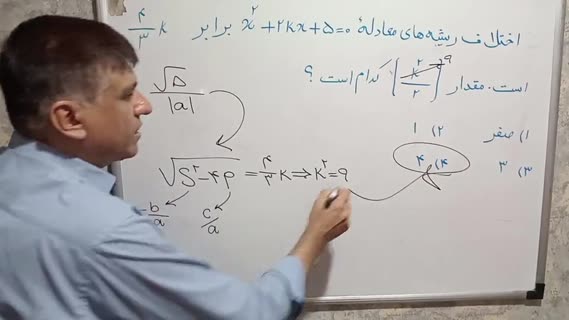 اختلاف ریشه‌های معادلهٔ x²+۲kx+۵=۰ برابر ۴/۳ k
است. مقدار [k²/۲] کدام است ؟
۹
۱) صفر ۲) ۱
۳) ۳ ۴) ۴
√Δ/|a|
√(S²-۴P) = ۴/۳ k ⇒ k²=۹
-b/a c/a